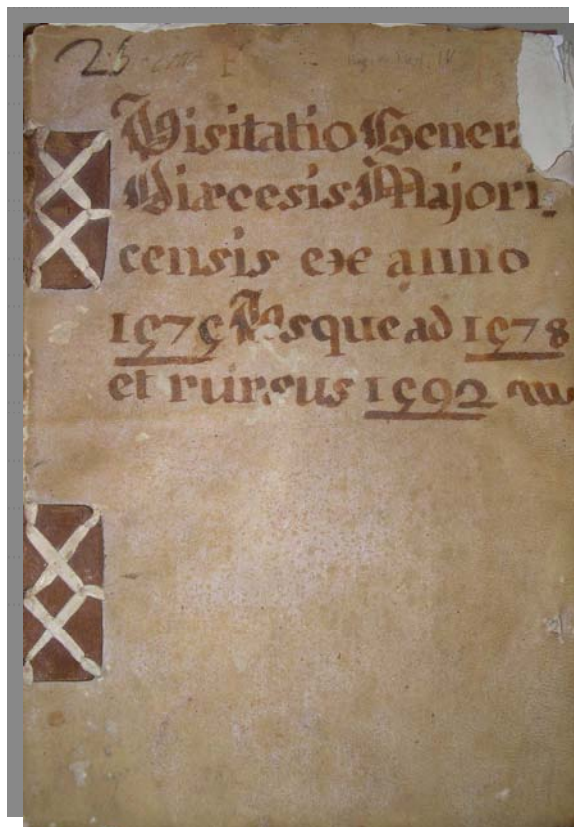 25
Visitatio Gener
Diœcesis Majori-
censis ex anno
1575 Vsque ad 1578
et rursus 1592